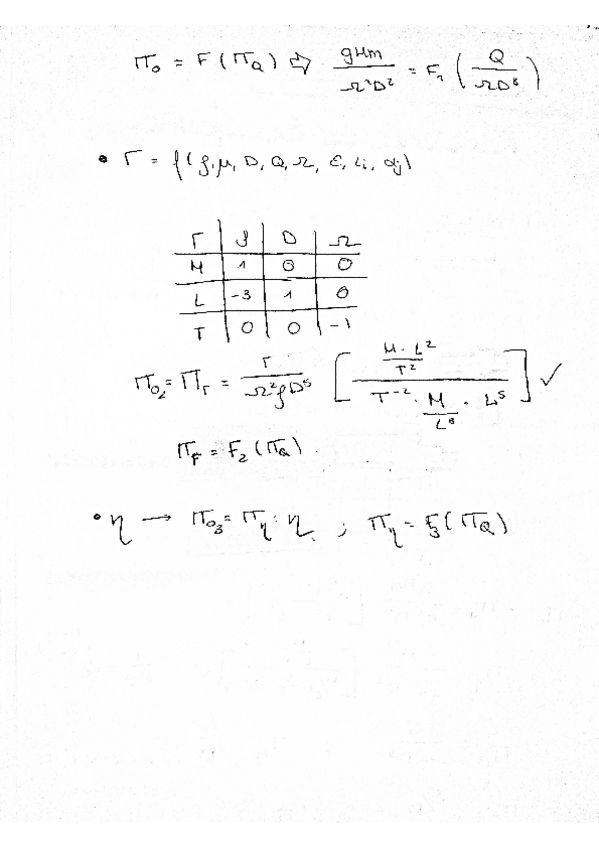 Π₀ = F(Π_Q) ⇨ gHm/Ω²D² = F₁(Q/ΩD³)
• Γ = f(ρ, μ, D, Q, Ω, ε, Li, αj)
Γ | ρ | D | Ω
M | 1 | 0 | 0
L | -3 | 1 | 0
T | 0 | 0 | -1
Π₀₂ = Π_Γ = Γ/Ω²ρD⁵ [ (M·L²/T²) / (T⁻²·M/L³·L⁵) ] ✓
Π_Γ = F₂(Π_Q).
• η → Π₀₃ = Π_η : η. ; Π_η = F₃(Π_Q)